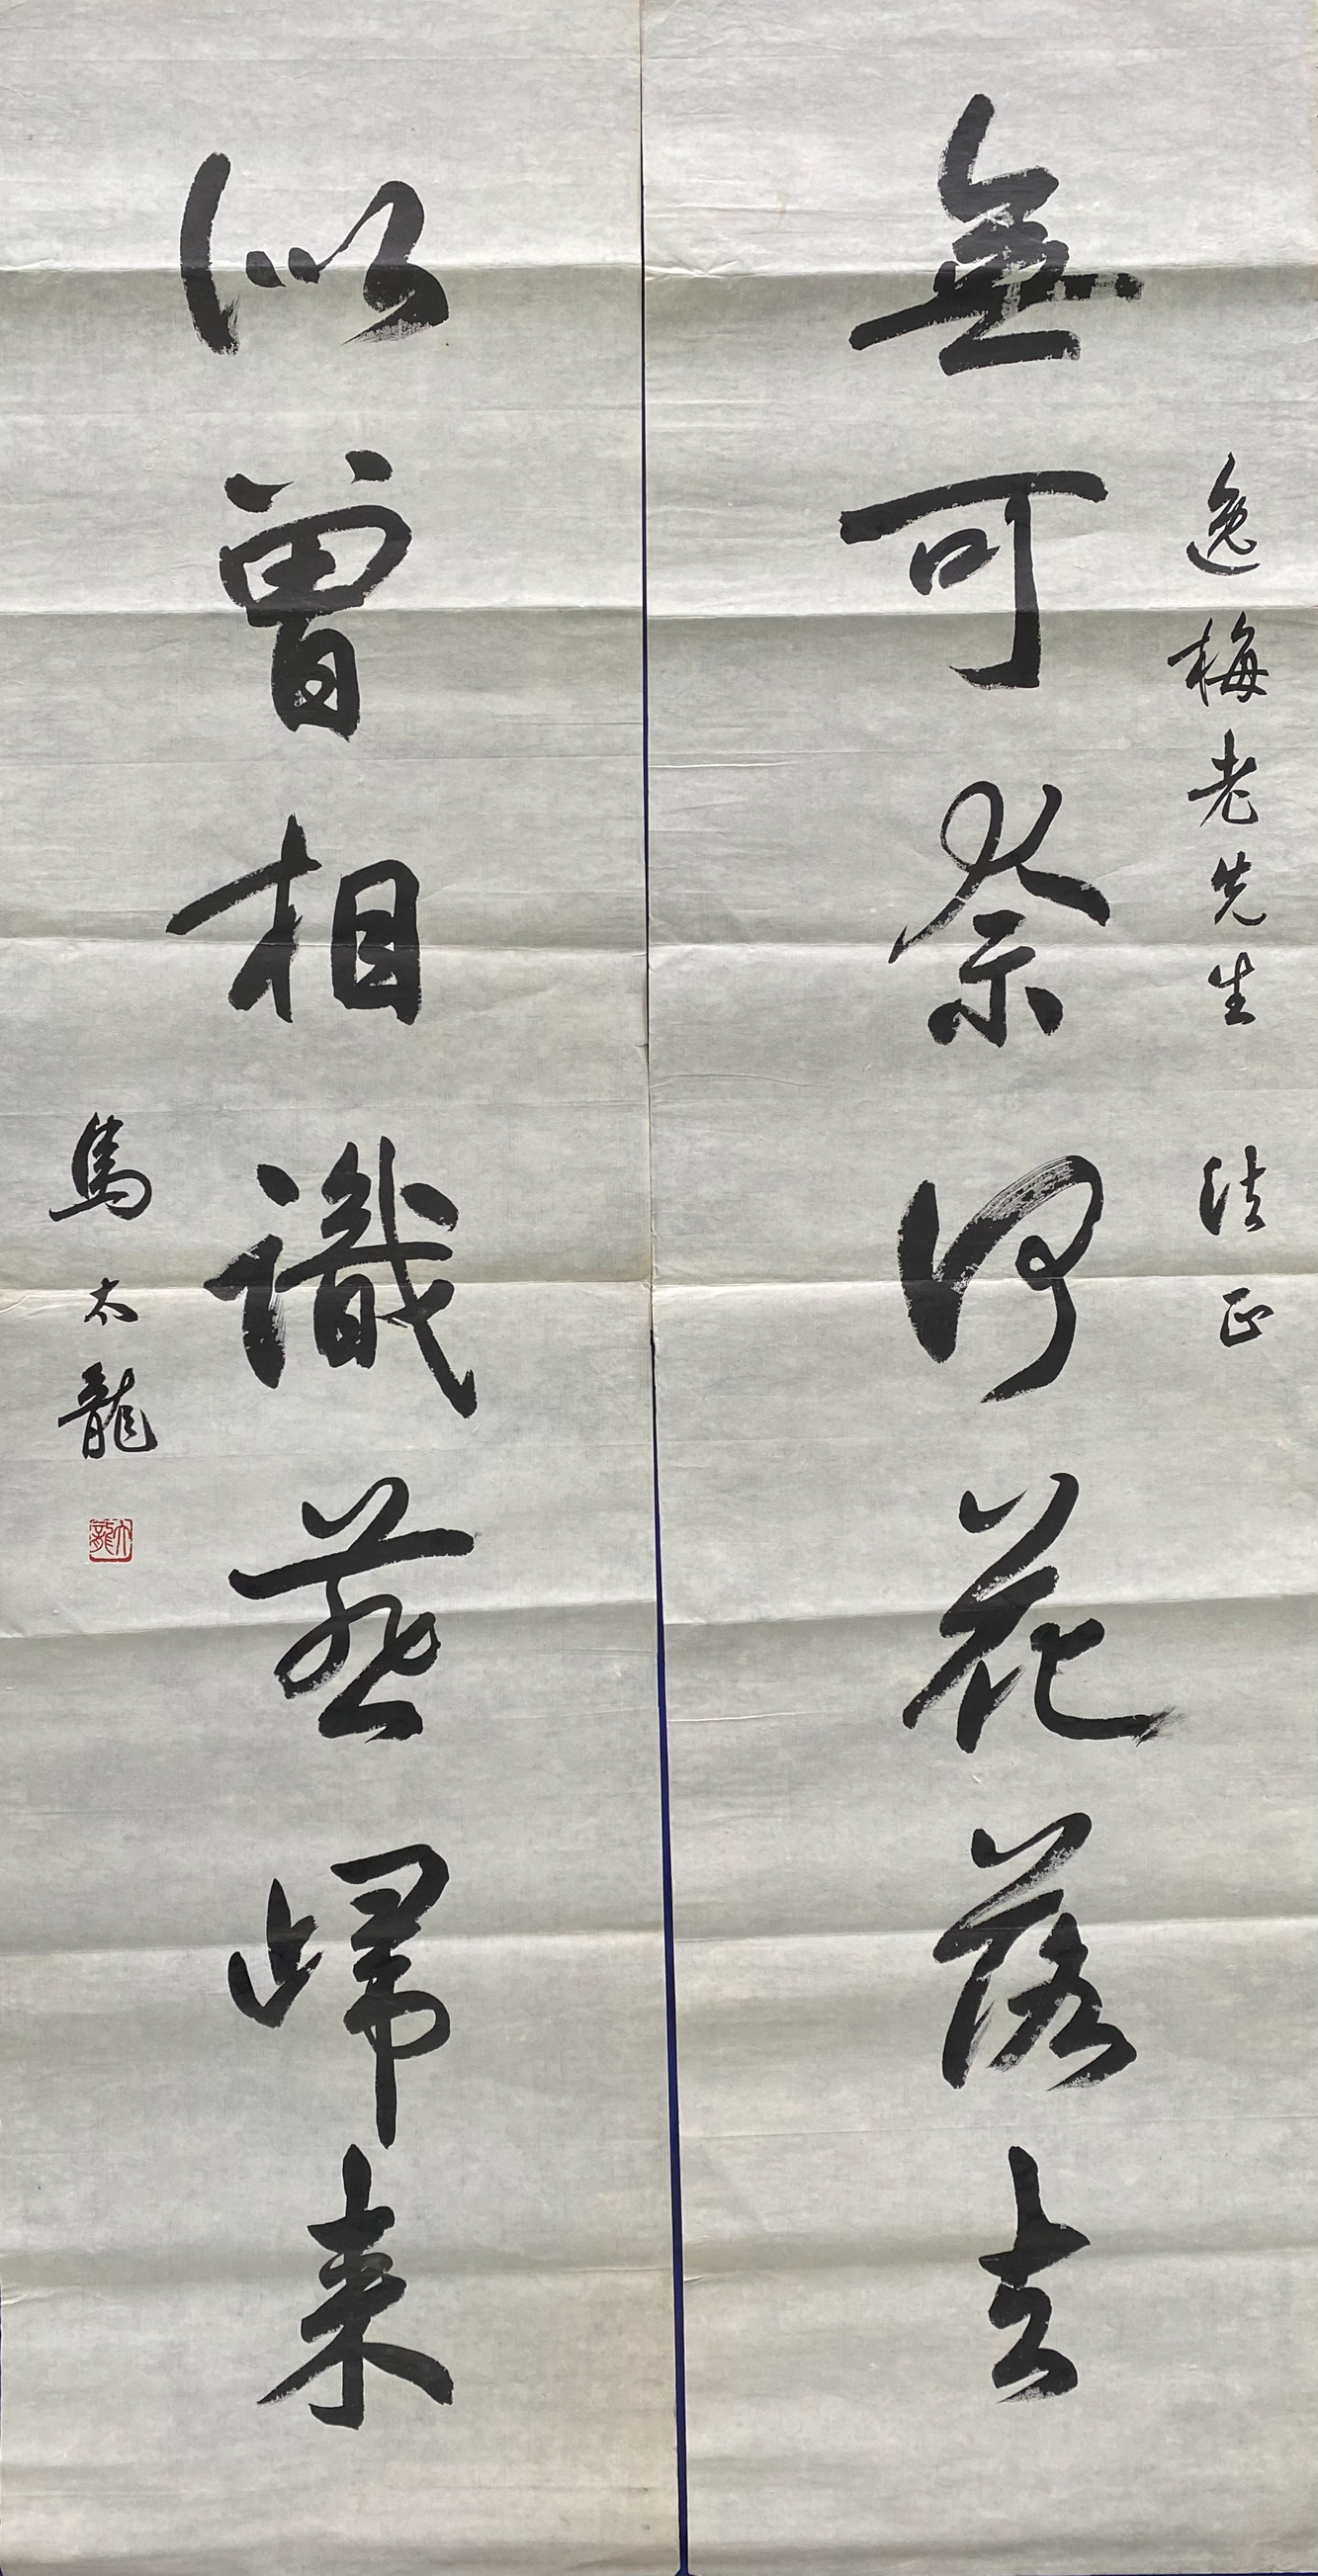 逸梅老先生 法正
無可奈何花落去
似曾相識燕歸来
馬太龍
太龍